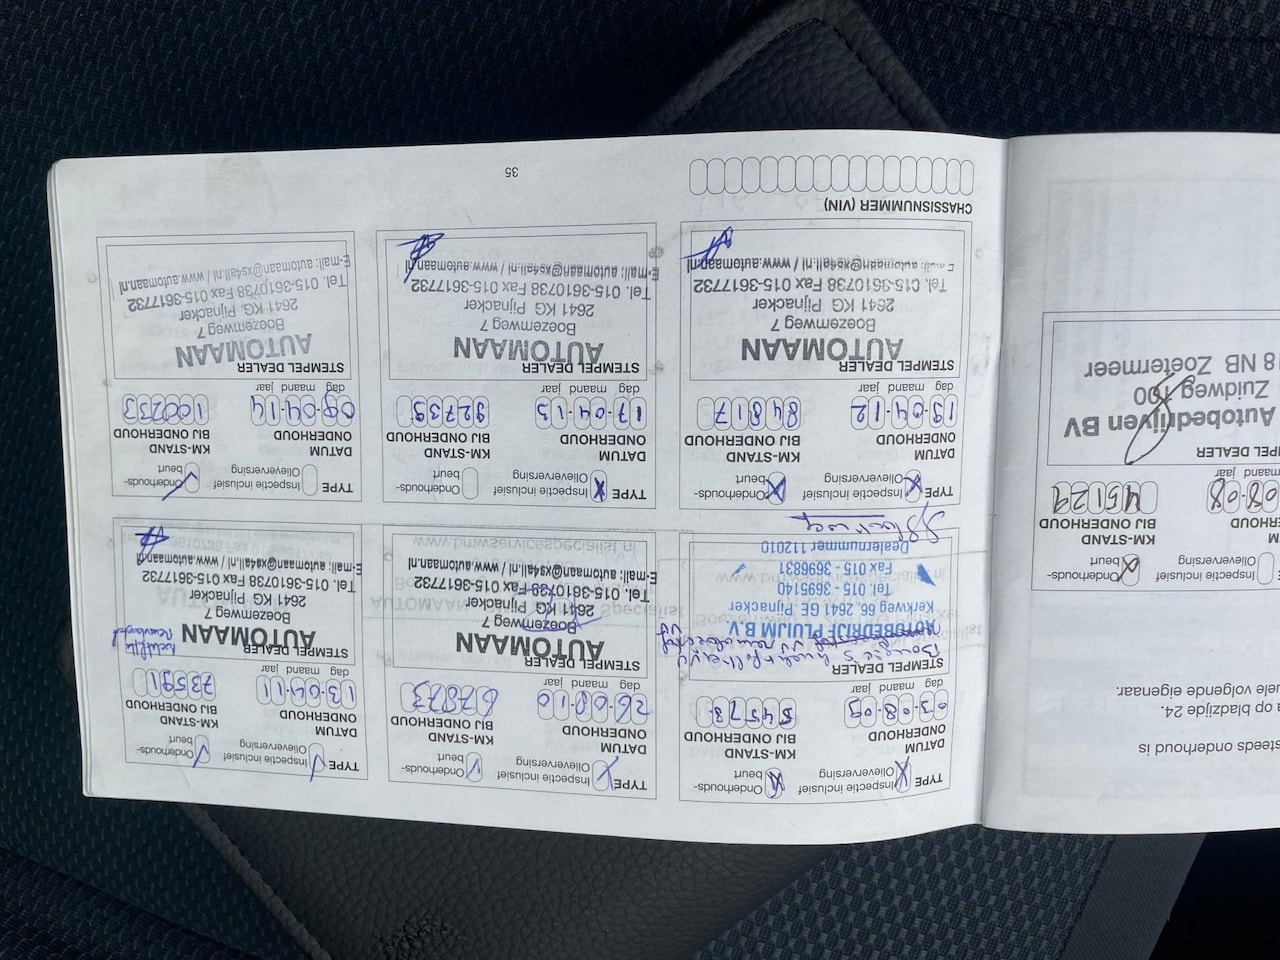 steeds onderhoud is
op bladzijde 24.
volgende eigenaar.
Inspectie inclusief
Olieverversing
Onderhouds-
beurt
BIJ ONDERHOUD
08-08
45129
maand jaar
DEALER
Autobedrijven BV
Zuidweg 100
NB Zoetermeer
TYPE
Inspectie inclusief
Olieverversing
Onderhouds-
beurt
DATUM
ONDERHOUD
KM-STAND
BIJ ONDERHOUD
03-08-09
54573
dag maand jaar
STEMPEL DEALER
AUTOBEDRIJF PLUIJM B.V.
Kerkweg 66, 2641 GE Pijnacker
Tel. 015 - 3695140
Fax 015 - 3696831
Dealernummer 112010
TYPE
Inspectie inclusief
Olieverversing
Onderhouds-
beurt
DATUM
ONDERHOUD
KM-STAND
BIJ ONDERHOUD
26-08-10
67873
dag maand jaar
STEMPEL DEALER
AUTOMAAN
Boezemweg 7
2641 KG Pijnacker
Tel. 015-3610738 Fax 015-3617732
E-mail: automaan@xs4all.nl / www.automaan.nl
TYPE
Inspectie inclusief
Olieverversing
Onderhouds-
beurt
DATUM
ONDERHOUD
KM-STAND
BIJ ONDERHOUD
13-04-11
73591
dag maand jaar
STEMPEL DEALER
AUTOMAAN
Boezemweg 7
2641 KG Pijnacker
Tel. 015-3610738 Fax 015-3617732
E-mail: automaan@xs4all.nl / www.automaan.nl
TYPE
Inspectie inclusief
Olieverversing
Onderhouds-
beurt
DATUM
ONDERHOUD
KM-STAND
BIJ ONDERHOUD
19-04-12
84817
dag maand jaar
STEMPEL DEALER
AUTOMAAN
Boezemweg 7
2641 KG Pijnacker
Tel. 015-3610738 Fax 015-3617732
E-mail: automaan@xs4all.nl / www.automaan.nl
TYPE
Inspectie inclusief
Olieverversing
Onderhouds-
beurt
DATUM
ONDERHOUD
KM-STAND
BIJ ONDERHOUD
17-04-13
92739
dag maand jaar
STEMPEL DEALER
AUTOMAAN
Boezemweg 7
2641 KG Pijnacker
Tel. 015-3610738 Fax 015-3617732
E-mail: automaan@xs4all.nl / www.automaan.nl
TYPE
Inspectie inclusief
Olieverversing
Onderhouds-
beurt
DATUM
ONDERHOUD
KM-STAND
BIJ ONDERHOUD
09-04-14
100233
dag maand jaar
STEMPEL DEALER
AUTOMAAN
Boezemweg 7
2641 KG Pijnacker
Tel. 015-3610738 Fax 015-3617732
E-mail: automaan@xs4all.nl / www.automaan.nl
CHASSISNUMMER (VIN)
35